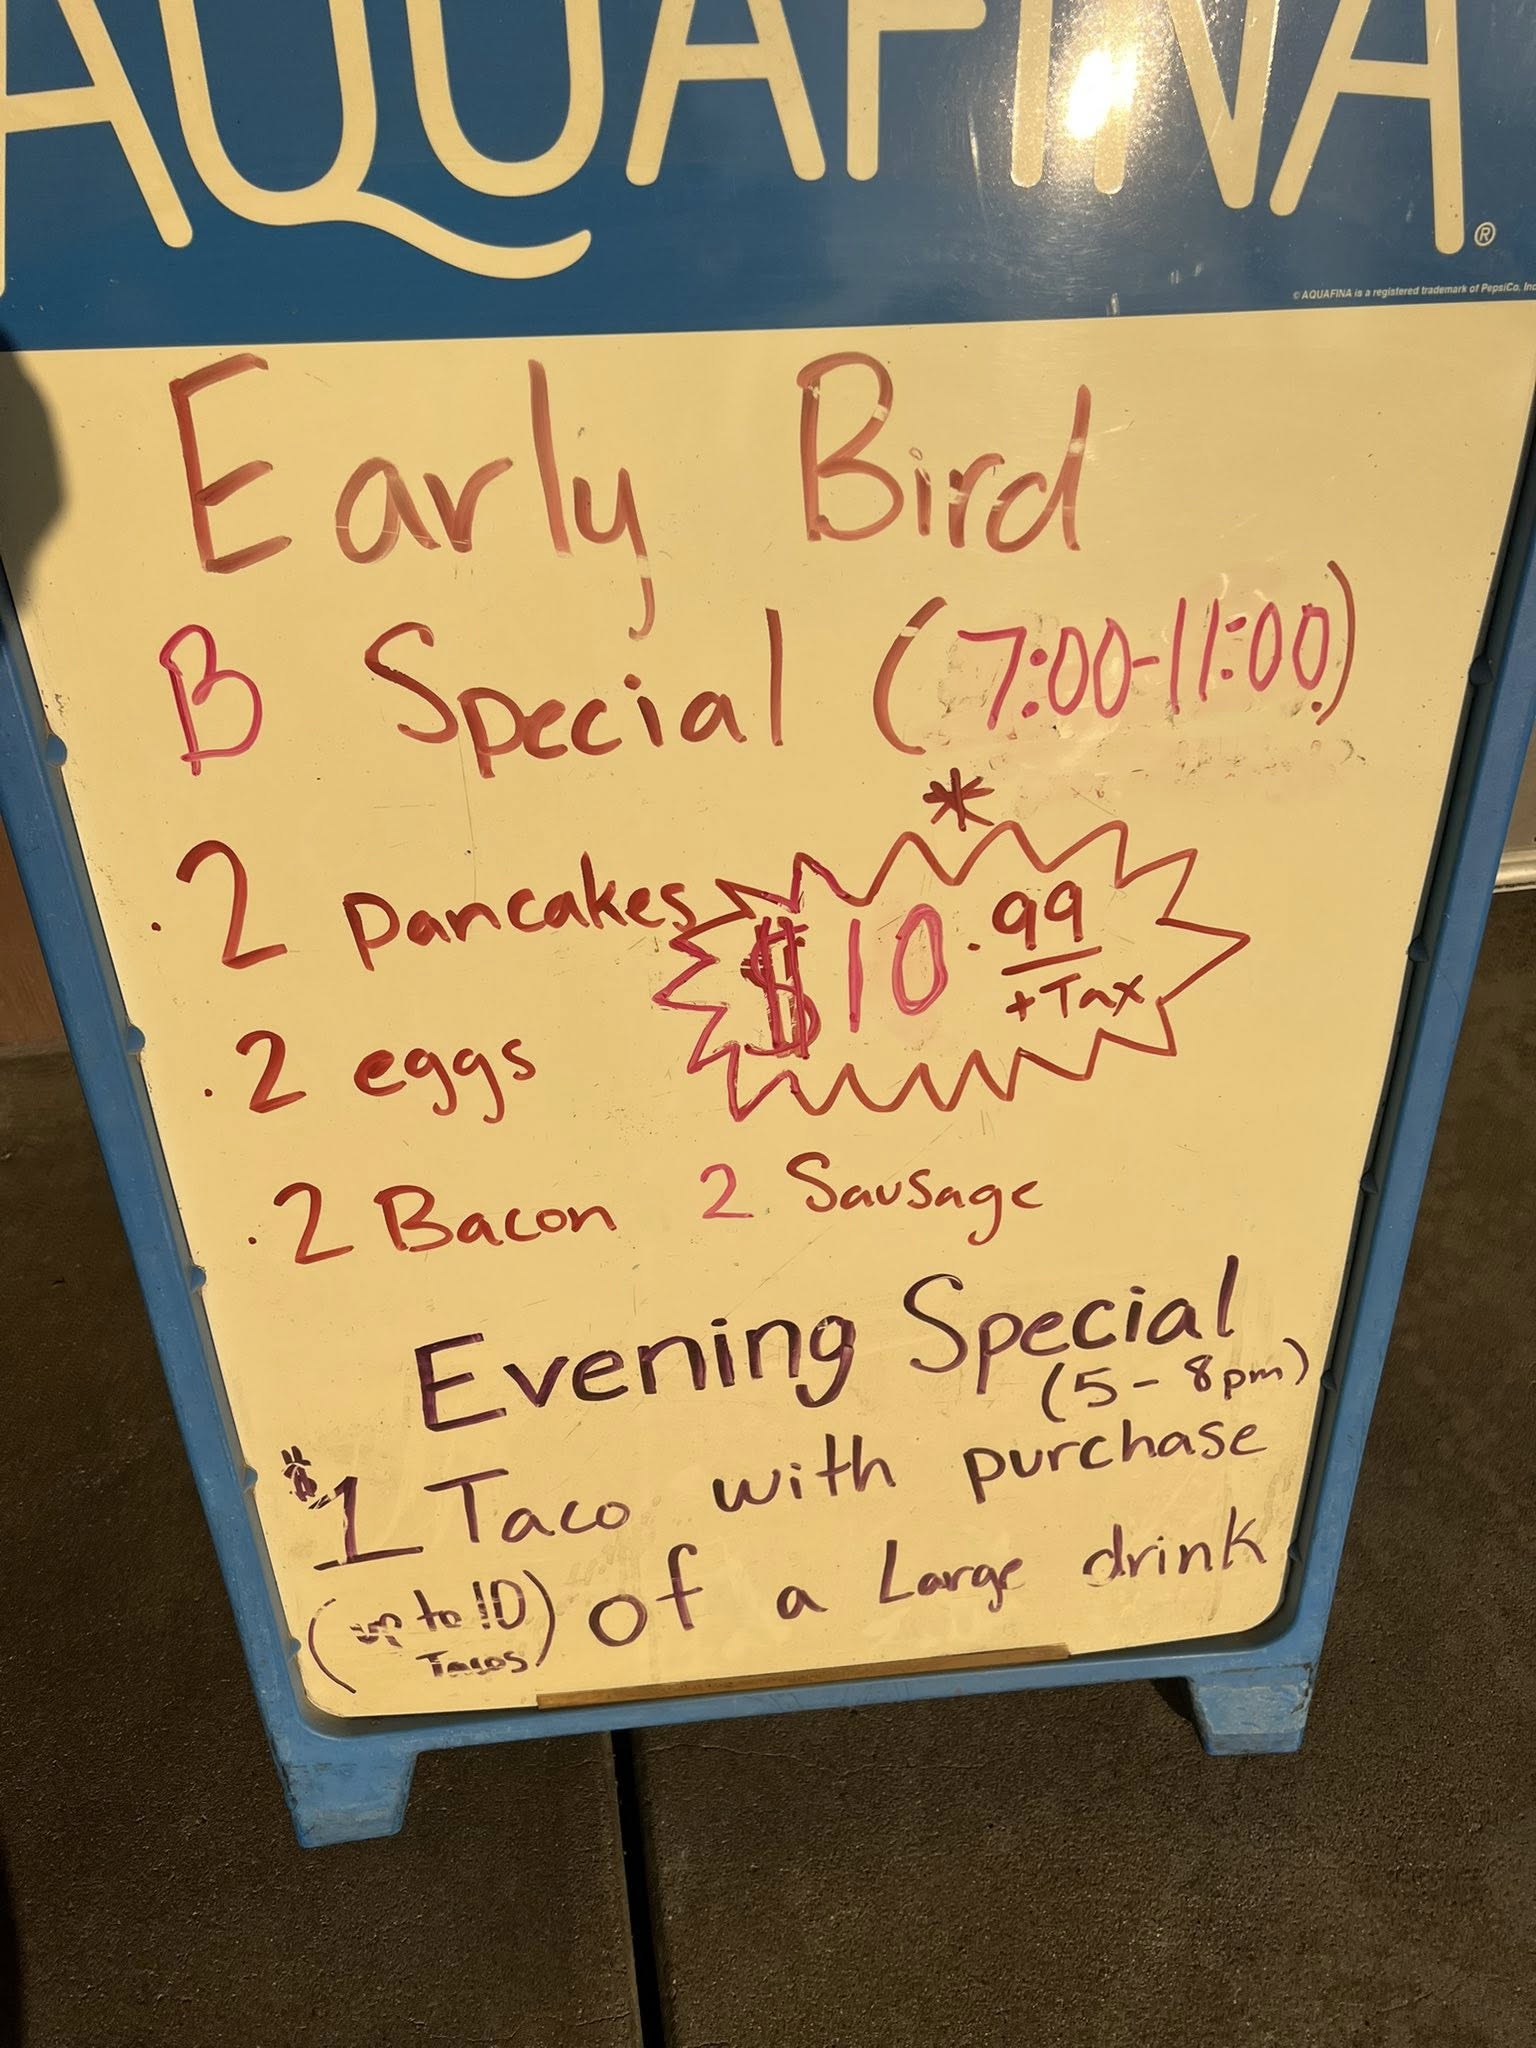 AQUAFINA®
© AQUAFINA is a registered trademark of PepsiCo, Inc
Early Bird
B Special (7:00-11:00)
*
. 2 pancakes
$10.99
+Tax
. 2 eggs
. 2 Bacon 2 Sausage
Evening Special
(5-8pm)
$1 Taco with purchase
(up to 10 Tacos) of a Large drink